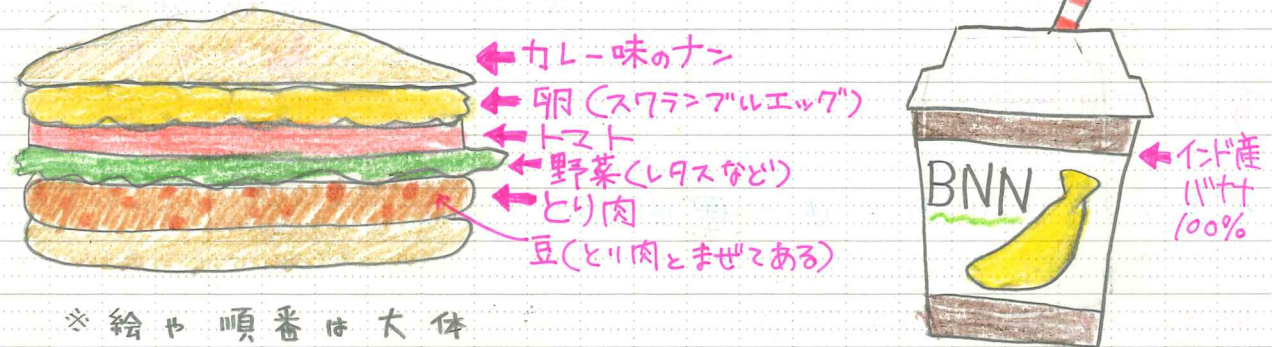 カレー味のナン
卵(スクランブルエッグ)
トマト
野菜(レタスなど)
とり肉
豆(とり肉とまぜてある)
※絵や順番は大体
BNN
インド産
バナナ
100%